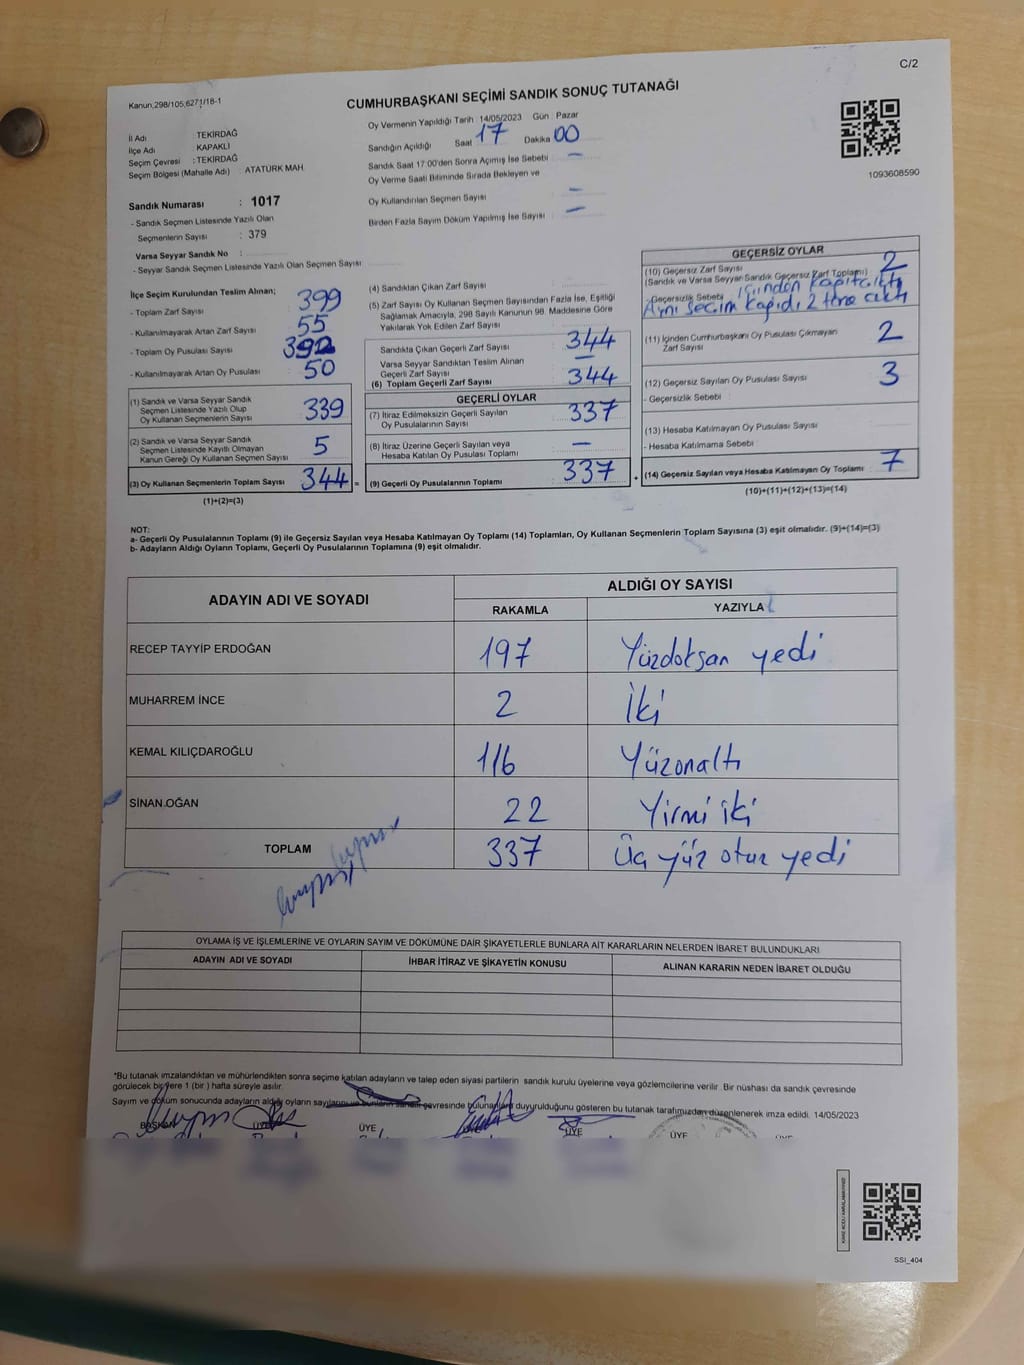 C/2
Kanun,298/105,6271/18-1
CUMHURBAŞKANI SEÇİMİ SANDIK SONUÇ TUTANAĞI
İl Adı : TEKİRDAĞ
İlçe Adı : KAPAKLI
Seçim Çevresi : TEKİRDAĞ
Seçim Bölgesi (Mahalle Adı) : ATATÜRK MAH.
Sandık Numarası : 1017
- Sandık Seçmen Listesinde Yazılı Olan
Seçmenlerin Sayısı : 379
Varsa Seyyar Sandık No :
- Seyyar Sandık Seçmen Listesinde Yazılı Olan Seçmen Sayısı
Oy Vermenin Yapıldığı Tarih : 14/05/2023 Gün : Pazar
Sandığın Açıldığı Saat 17 Dakika 00
Sandık Saat 17:00'den Sonra Açımış İse Sebebi —
Oy Verme Saati Bitiminde Sırada Bekleyen ve
Oy Kullandırılan Seçmen Sayısı —
Birden Fazla Sayım Döküm Yapılmış İse Sayısı —
1093608590
İlçe Seçim Kurulundan Teslim Alınan;
- Toplam Zarf Sayısı 399
- Kullanılmayarak Artan Zarf Sayısı 55
- Toplam Oy Pusulası Sayısı 392
- Kullanılmayarak Artan Oy Pusulası 50
(1) Sandık ve Varsa Seyyar Sandık
Seçmen Listesinde Yazılı Olup
Oy Kullanan Seçmenlerin Sayısı 339
(2) Sandık ve Varsa Seyyar Sandık
Seçmen Listesinde Kayıtlı Olmayan
Kanun Gereği Oy Kullanan Seçmen Sayısı 5
(3) Oy Kullanan Seçmenlerin Toplam Sayısı 344 =
(1)+(2)=(3)
(4) Sandıktan Çıkan Zarf Sayısı
(5) Zarf Sayısı Oy Kullanan Seçmen Sayısından Fazla İse, Eşitliği
Sağlamak Amacıyla, 298 Sayılı Kanunun 98. Maddesine Göre
Yakılarak Yok Edilen Zarf Sayısı
Sandıkta Çıkan Geçerli Zarf Sayısı 344
Varsa Seyyar Sandıktan Teslim Alınan
Geçerli Zarf Sayısı —
(6) Toplam Geçerli Zarf Sayısı 344
GEÇERLİ OYLAR
(7) İtiraz Edilmeksizin Geçerli Sayılan
Oy Pusulalarının Sayısı 337
(8) İtiraz Üzerine Geçerli Sayılan veya
Hesaba Katılan Oy Pusulası Toplamı —
(9) Geçerli Oy Pusulalarının Toplamı 337 +
GEÇERSİZ OYLAR
(10) Geçersiz Zarf Sayısı 2
(Sandık ve Varsa Seyyar Sandık Geçersiz Zarf Toplamı)
- Geçersizlik Sebebi içinden
Aynı seçim 2 tane çıktı
(11) İçinden Cumhurbaşkanı Oy Pusulası Çıkmayan
Zarf Sayısı 2
(12) Geçersiz Sayılan Oy Pusulası Sayısı 3
- Geçersizlik Sebebi :
(13) Hesaba Katılmayan Oy Pusulası Sayısı
- Hesaba Katılmama Sebebi
(14) Geçersiz Sayılan veya Hesaba Katılmayan Oy Toplamı 7
(10)+(11)+(12)+(13)=(14)
NOT:
a- Geçerli Oy Pusulalarının Toplamı (9) ile Geçersiz Sayılan veya Hesaba Katılmayan Oy Toplamı (14) Toplamları, Oy Kullanan Seçmenlerin Toplam Sayısına (3) eşit olmalıdır. (9)+(14)=(3)
b- Adayların Aldığı Oyların Toplamı, Geçerli Oy Pusulalarının Toplamına (9) eşit olmalıdır.
ADAYIN ADI VE SOYADI
ALDIĞI OY SAYISI
RAKAMLA YAZIYLA
RECEP TAYYİP ERDOĞAN 197 Yüzdoksan yedi
MUHARREM İNCE 2 İki
KEMAL KILIÇDAROĞLU 116 Yüzonaltı
SİNAN OĞAN 22 Yirmi iki
TOPLAM 337 Üç yüz otuz yedi
OYLAMA İŞ VE İŞLEMLERİNE VE OYLARIN SAYIM VE DÖKÜMÜNE DAİR ŞİKAYETLERLE BUNLARA AİT KARARLARIN NELERDEN İBARET BULUNDUKLARI
ADAYIN ADI VE SOYADI İHBAR İTİRAZ VE ŞİKAYETİN KONUSU ALINAN KARARIN NEDEN İBARET OLDUĞU
*Bu tutanak imzalandıktan ve mühürlendikten sonra seçime katılan adayların ve talep eden siyasi partilerin sandık kurulu üyelerine veya gözlemcilerine verilir. Bir nüshası da sandık çevresinde
görülecek bir yere 1 (bir) hafta süreyle asılır.
Sayım ve döküm sonucunda adayların aldığı oyların sayılarını ve bunların sandık çevresinde bulunanlara duyurulduğunu gösteren bu tutanak tarafımızdan düzenlenerek imza edildi. 14/05/2023
BAŞKAN ÜYE ÜYE ÜYE ÜYE
SSI_404